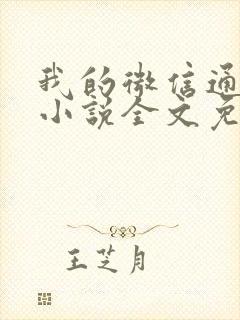 我的微信通
小说全文免
王芝月